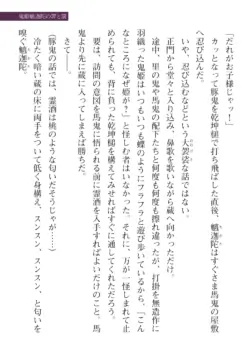 「だれがお子様じゃっ！」
カッとなって豚鬼を乾坤槌で打ち飛ばした直後、魈迦陀はすぐさま馬鬼の屋敷
へ忍び込んだ。
いや、忍び込むなどという大袈裟な話ではない。
正門から堂々と入り込み、鼻歌を歌いながら蔵へ向かっただけ。
途中、里の鬼や馬鬼の配下たちと何度も何度も擦れ違ったが、打掛を無造作に
羽織った鬼姫はいつもいつも蝶のようにフラフラと遊び歩いているから、「こん
なところになぜ姫が？」と怪しむ者はいなかった。それに、万が一怪しまれて止
められても、背に負った乾坤槌を構えてみせればすぐに通してくれただろう。
要は、詰問の意図を馬鬼に悟られる前に霊酒を入手すればよいだけのこと。馬
鬼より先に蔵に入ってしまえば勝ちだ。
さて――。
「豚鬼の話では、霊酒は桃のような匂いだそうじゃが――……」
冷たく暗い蔵の床に両手をついて低く身構え、スンスン、スンスン、と匂いを
嗅ぐ魈迦陀。